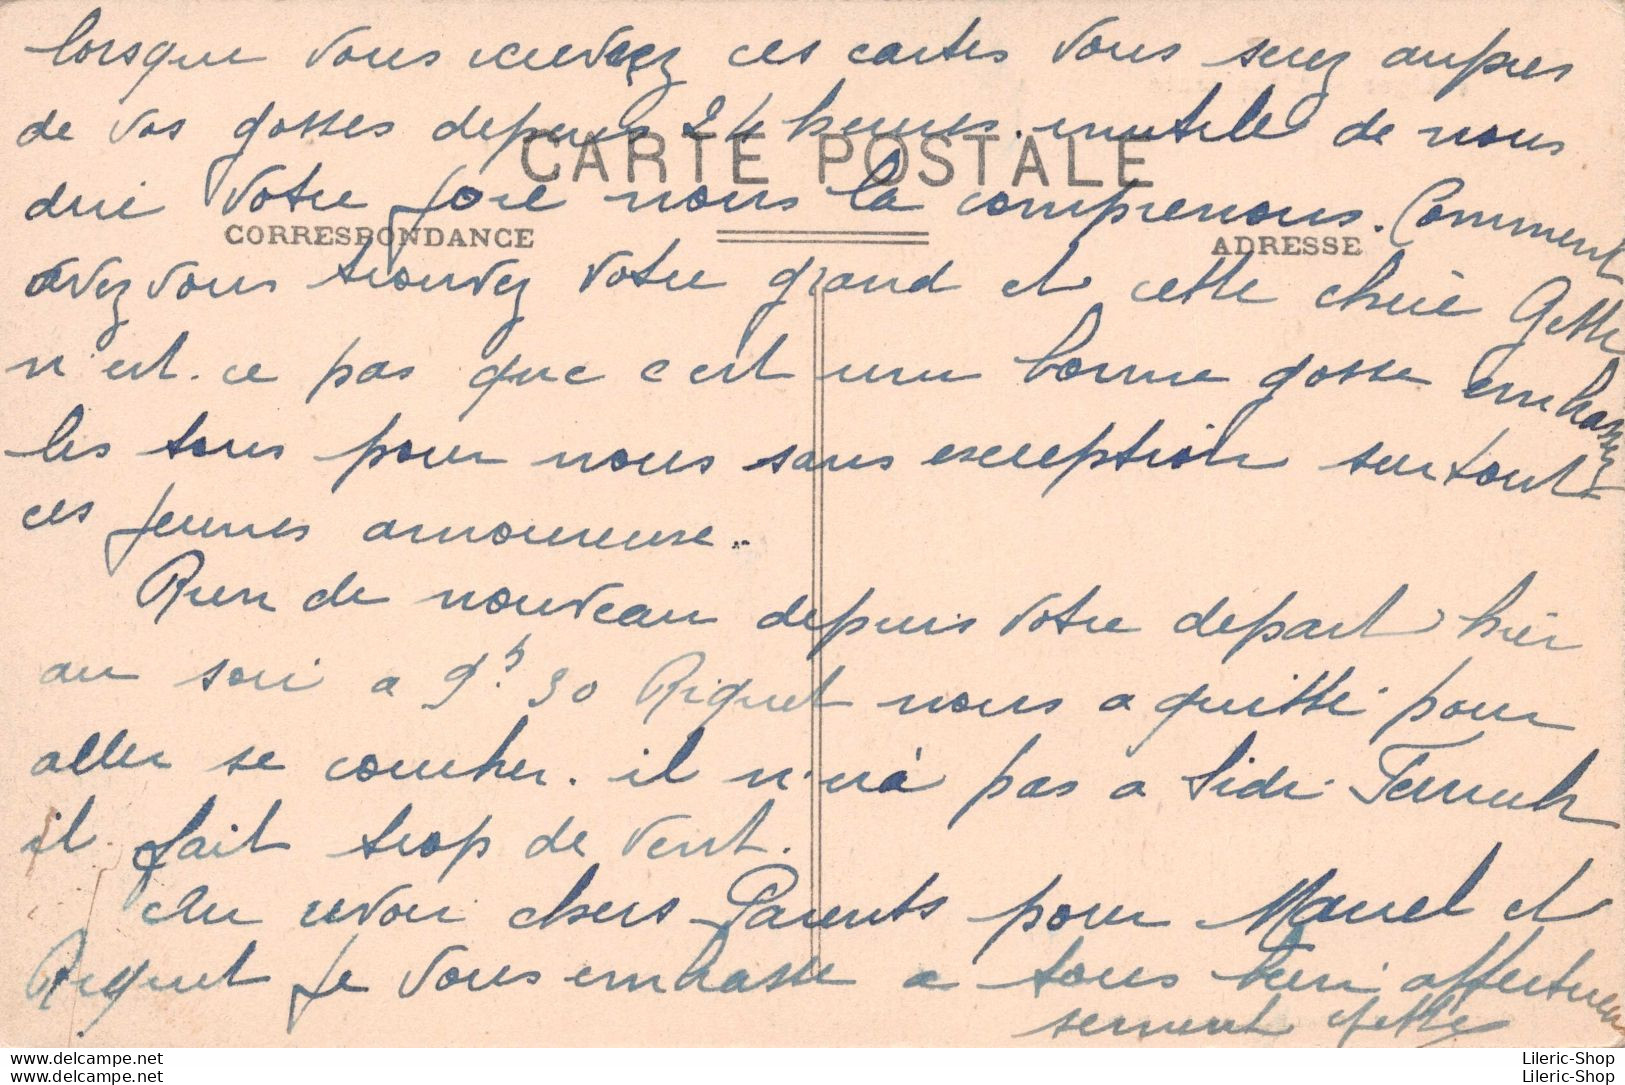 lorsque vous recevrez ces cartes vous serez aupres
de vos gosses depuis 24 heures. inutile de nous
CARTE POSTALE
dire votre joie nous la comprenons. Comment
CORRESPONDANCE
ADRESSE
avez vous trouvez votre grand et cette chérie
n'est-ce pas que c'est une bonne gosse embrassez
les tous pour nous sans exception surtout
ces jeunes amoureuse..
Rien de nouveau depuis votre depart hier
au soir a 9h.30 Riquet nous a quitté pour
aller se coucher. il n'ira pas a Sidi
il fait trop de vent.
Au revoir chers Parents pour Marcel et
Riquet je vous embrasse a tous bien affectueu
sement
Lileric-Shop
Lileric-Shop